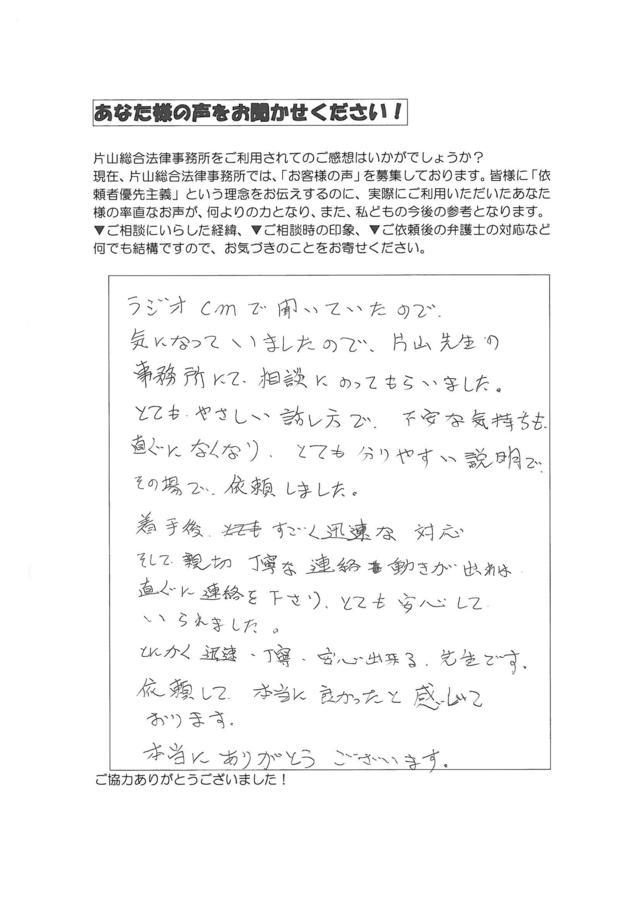 あなた様の声をお聞かせください！
片山総合法律事務所をご利用されてのご感想はいかがでしょうか？
現在、片山総合法律事務所では、「お客様の声」を募集しております。皆様に「依
頼者優先主義」という理念をお伝えするのに、実際にご利用いただいたあなた
様の率直なお声が、何よりの力となり、また、私どもの今後の参考となります。
▼ご相談にいらした経緯、▼ご相談時の印象、▼ご依頼後の弁護士の対応など
何でも結構ですので、お気づきのことをお寄せください。
ラジオcmで聞いていたので、
気になっていましたので、片山先生の
事務所にて、相談にのってもらいました。
とても、やさしい話し方で、不安な気持ちも、
直ぐになくなり、とても分りやすい説明で、
その場で、依頼しました。
着手後、すごく迅速な対応
そして、親切丁寧な連絡動きが出れば
直ぐに連絡を下さり、とても安心して
いられました。
とにかく迅速・丁寧・安心出来る、先生です。
依頼して、本当に良かったと感じて
おります。
本当にありがとうございます。
ご協力ありがとうございました！